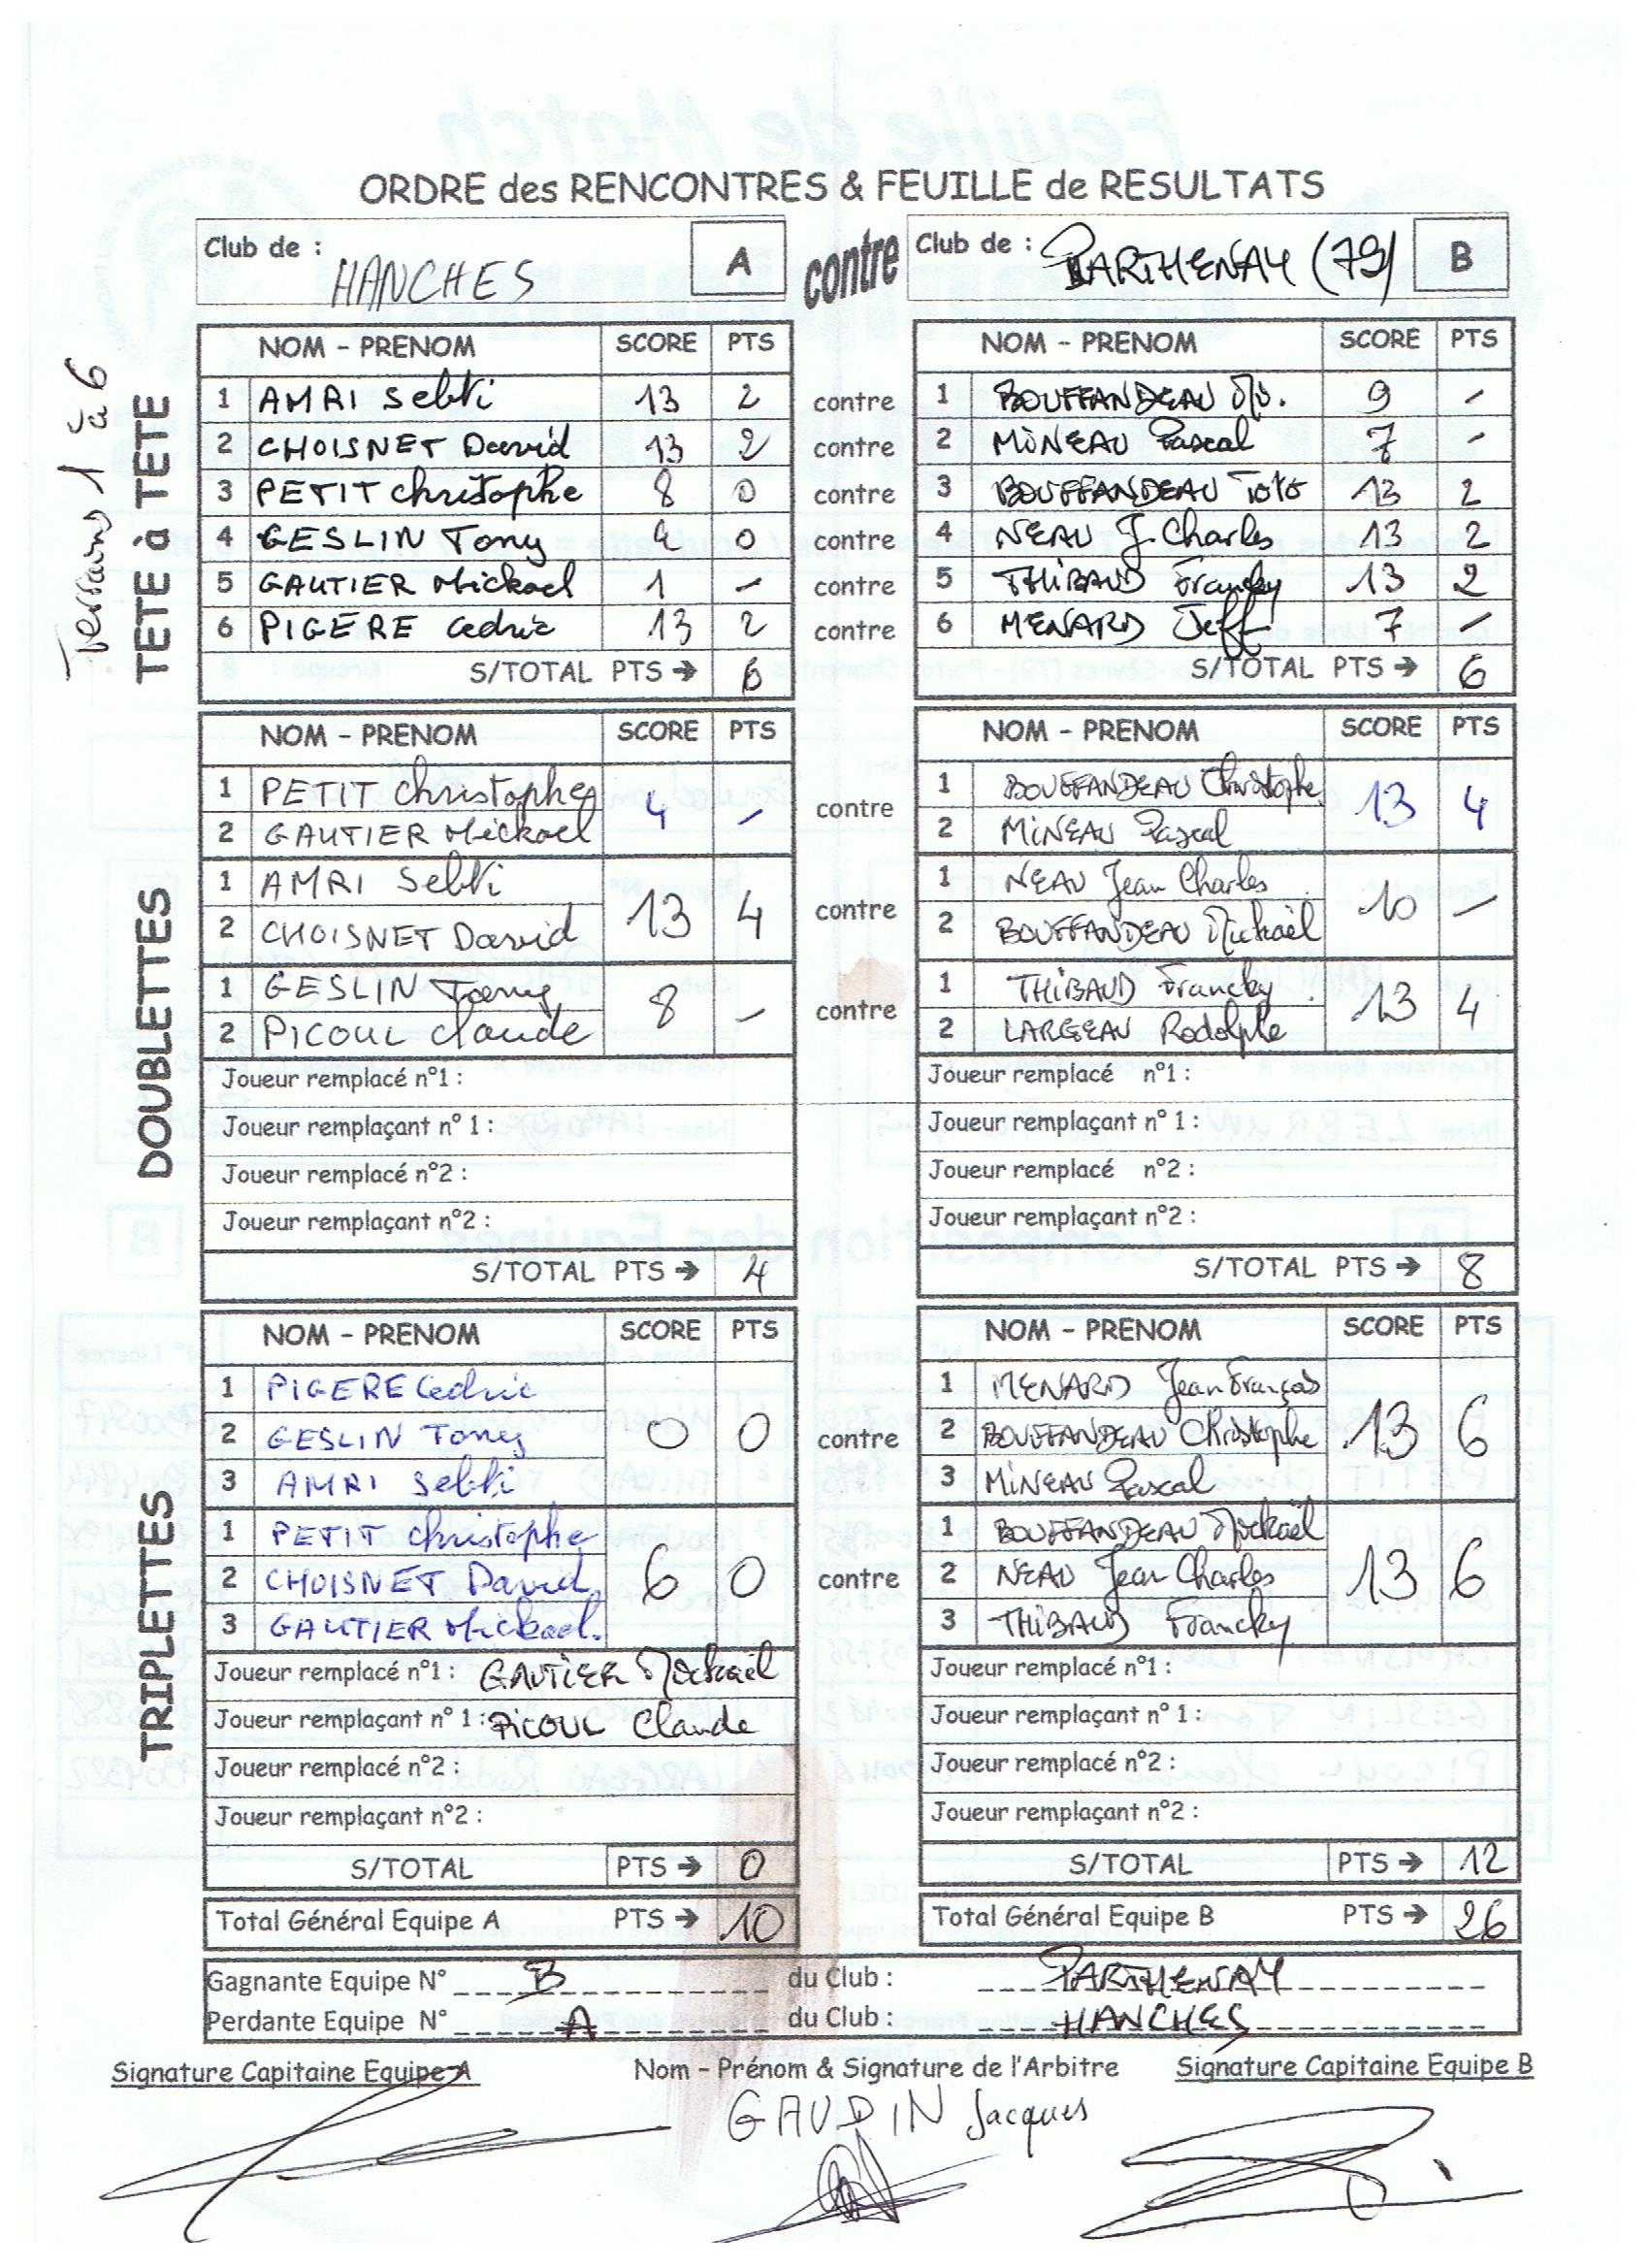 ORDRE des RENCONTRES & FEUILLE de RESULTATS
Club de : HANCHES A contre Club de : PARTHENAY (79) B
Terrains 1 à 6
TETE à TETE
NOM - PRENOM SCORE PTS NOM - PRENOM SCORE PTS
1 AMRI Sebti 13 2 contre 1 BOUFFANDEAU Mi. 9 -
2 CHOISNET David 13 2 contre 2 MINEAU Pascal 7 -
3 PETIT Christophe 8 0 contre 3 BOUFFANDEAU Toto 13 2
4 GESLIN Tony 4 0 contre 4 NEAU J. Charles 13 2
5 GAUTIER Mickael 1 - contre 5 THIBAUD Francky 13 2
6 PIGERE Cedric 13 2 contre 6 MENARD Jeff 7 -
S/TOTAL PTS → 6 S/TOTAL PTS → 6
DOUBLETTES
NOM - PRENOM SCORE PTS NOM - PRENOM SCORE PTS
1 PETIT Christophe 4 - contre 1 BOUFFANDEAU Christophe 13 4
2 GAUTIER Mickael 2 MINEAU Pascal
1 AMRI Sebti 13 4 contre 1 NEAU Jean Charles 10 -
2 CHOISNET David 2 BOUFFANDEAU Mickaël
1 GESLIN Tony 8 - contre 1 THIBAUD Francky 13 4
2 PICOUL Claude 2 LARGEAU Rodolphe
Joueur remplacé n°1 : Joueur remplacé n°1 :
Joueur remplaçant n° 1 : Joueur remplaçant n° 1 :
Joueur remplacé n°2 : Joueur remplacé n°2 :
Joueur remplaçant n°2 : Joueur remplaçant n°2 :
S/TOTAL PTS → 4 S/TOTAL PTS → 8
TRIPLETTES
NOM - PRENOM SCORE PTS NOM - PRENOM SCORE PTS
1 PIGERE Cedric 1 MENARD Jean François
2 GESLIN Tony 0 0 contre 2 BOUFFANDEAU Christophe 13 6
3 AMRI Sebti 3 MINEAU Pascal
1 PETIT Christophe 1 BOUFFANDEAU Mickaël
2 CHOISNET David 6 0 contre 2 NEAU Jean Charles 13 6
3 GAUTIER Mickael. 3 THIBAUD Francky
Joueur remplacé n°1 : GAUTIER Mickaël Joueur remplacé n°1 :
Joueur remplaçant n° 1 : PICOUL Claude Joueur remplaçant n° 1 :
Joueur remplacé n°2 : Joueur remplacé n°2 :
Joueur remplaçant n°2 : Joueur remplaçant n°2 :
S/TOTAL PTS → 0 S/TOTAL PTS → 12
Total Général Equipe A PTS → 10 Total Général Equipe B PTS → 26
Gagnante Equipe N° B du Club : PARTHENAY
Perdante Equipe N° A du Club : HANCHES
Signature Capitaine Equipe A Nom - Prénom & Signature de l'Arbitre Signature Capitaine Equipe B
GAUDIN Jacques